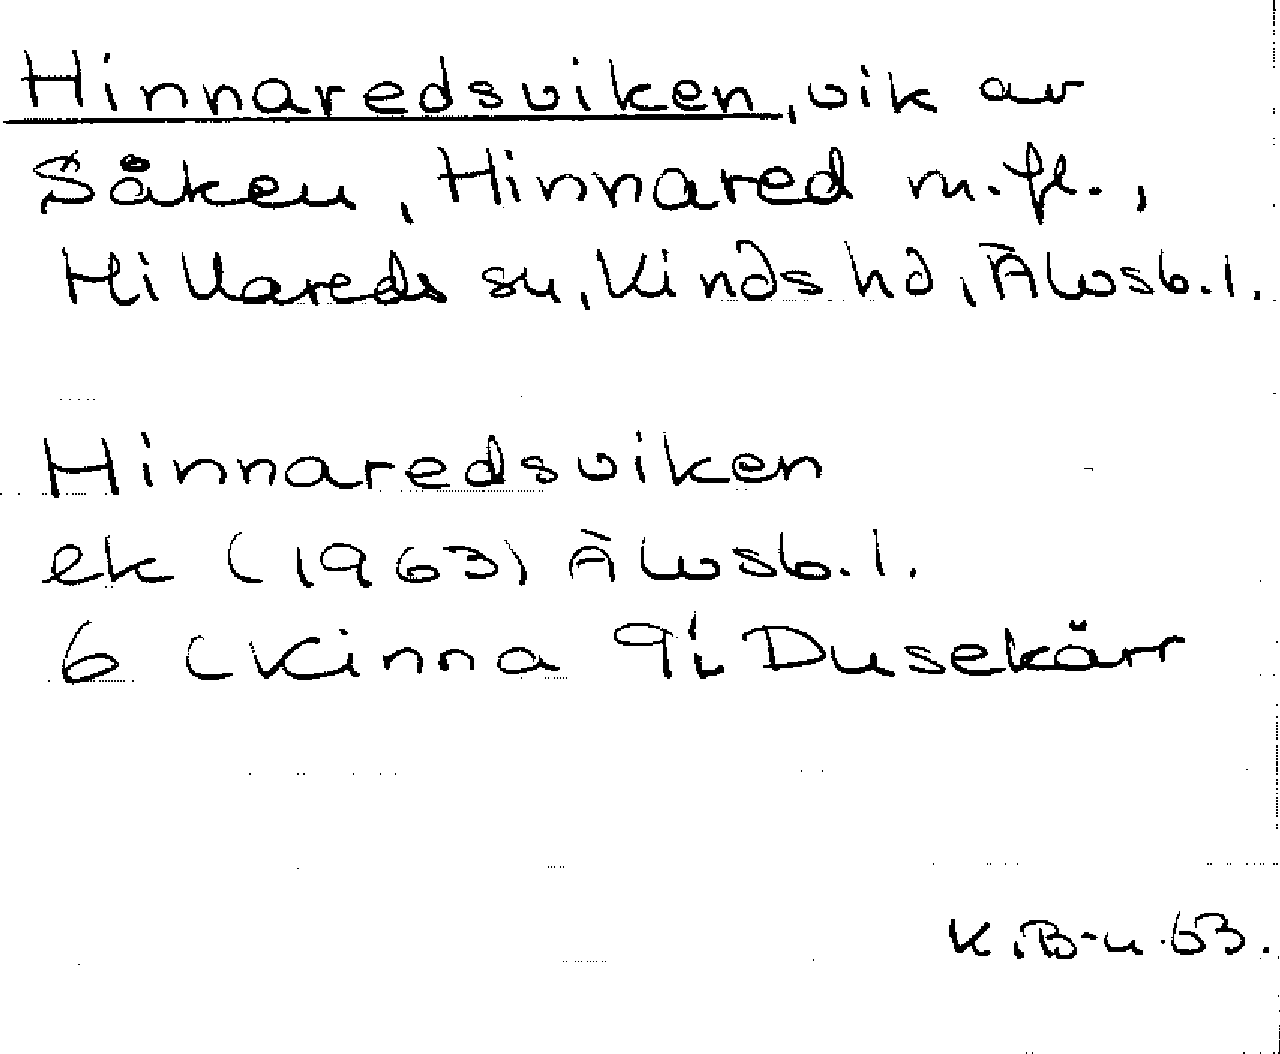 Hinnaredsviken, vik av
Såken, Hinnared m.fl.,
Hillareds sn, Kinds hd, Älvsb.l.
Hinnaredsviken
ek (1963) Älvsb.l.
6 (Kinna 9i Dusekärr
K.B-n.63.